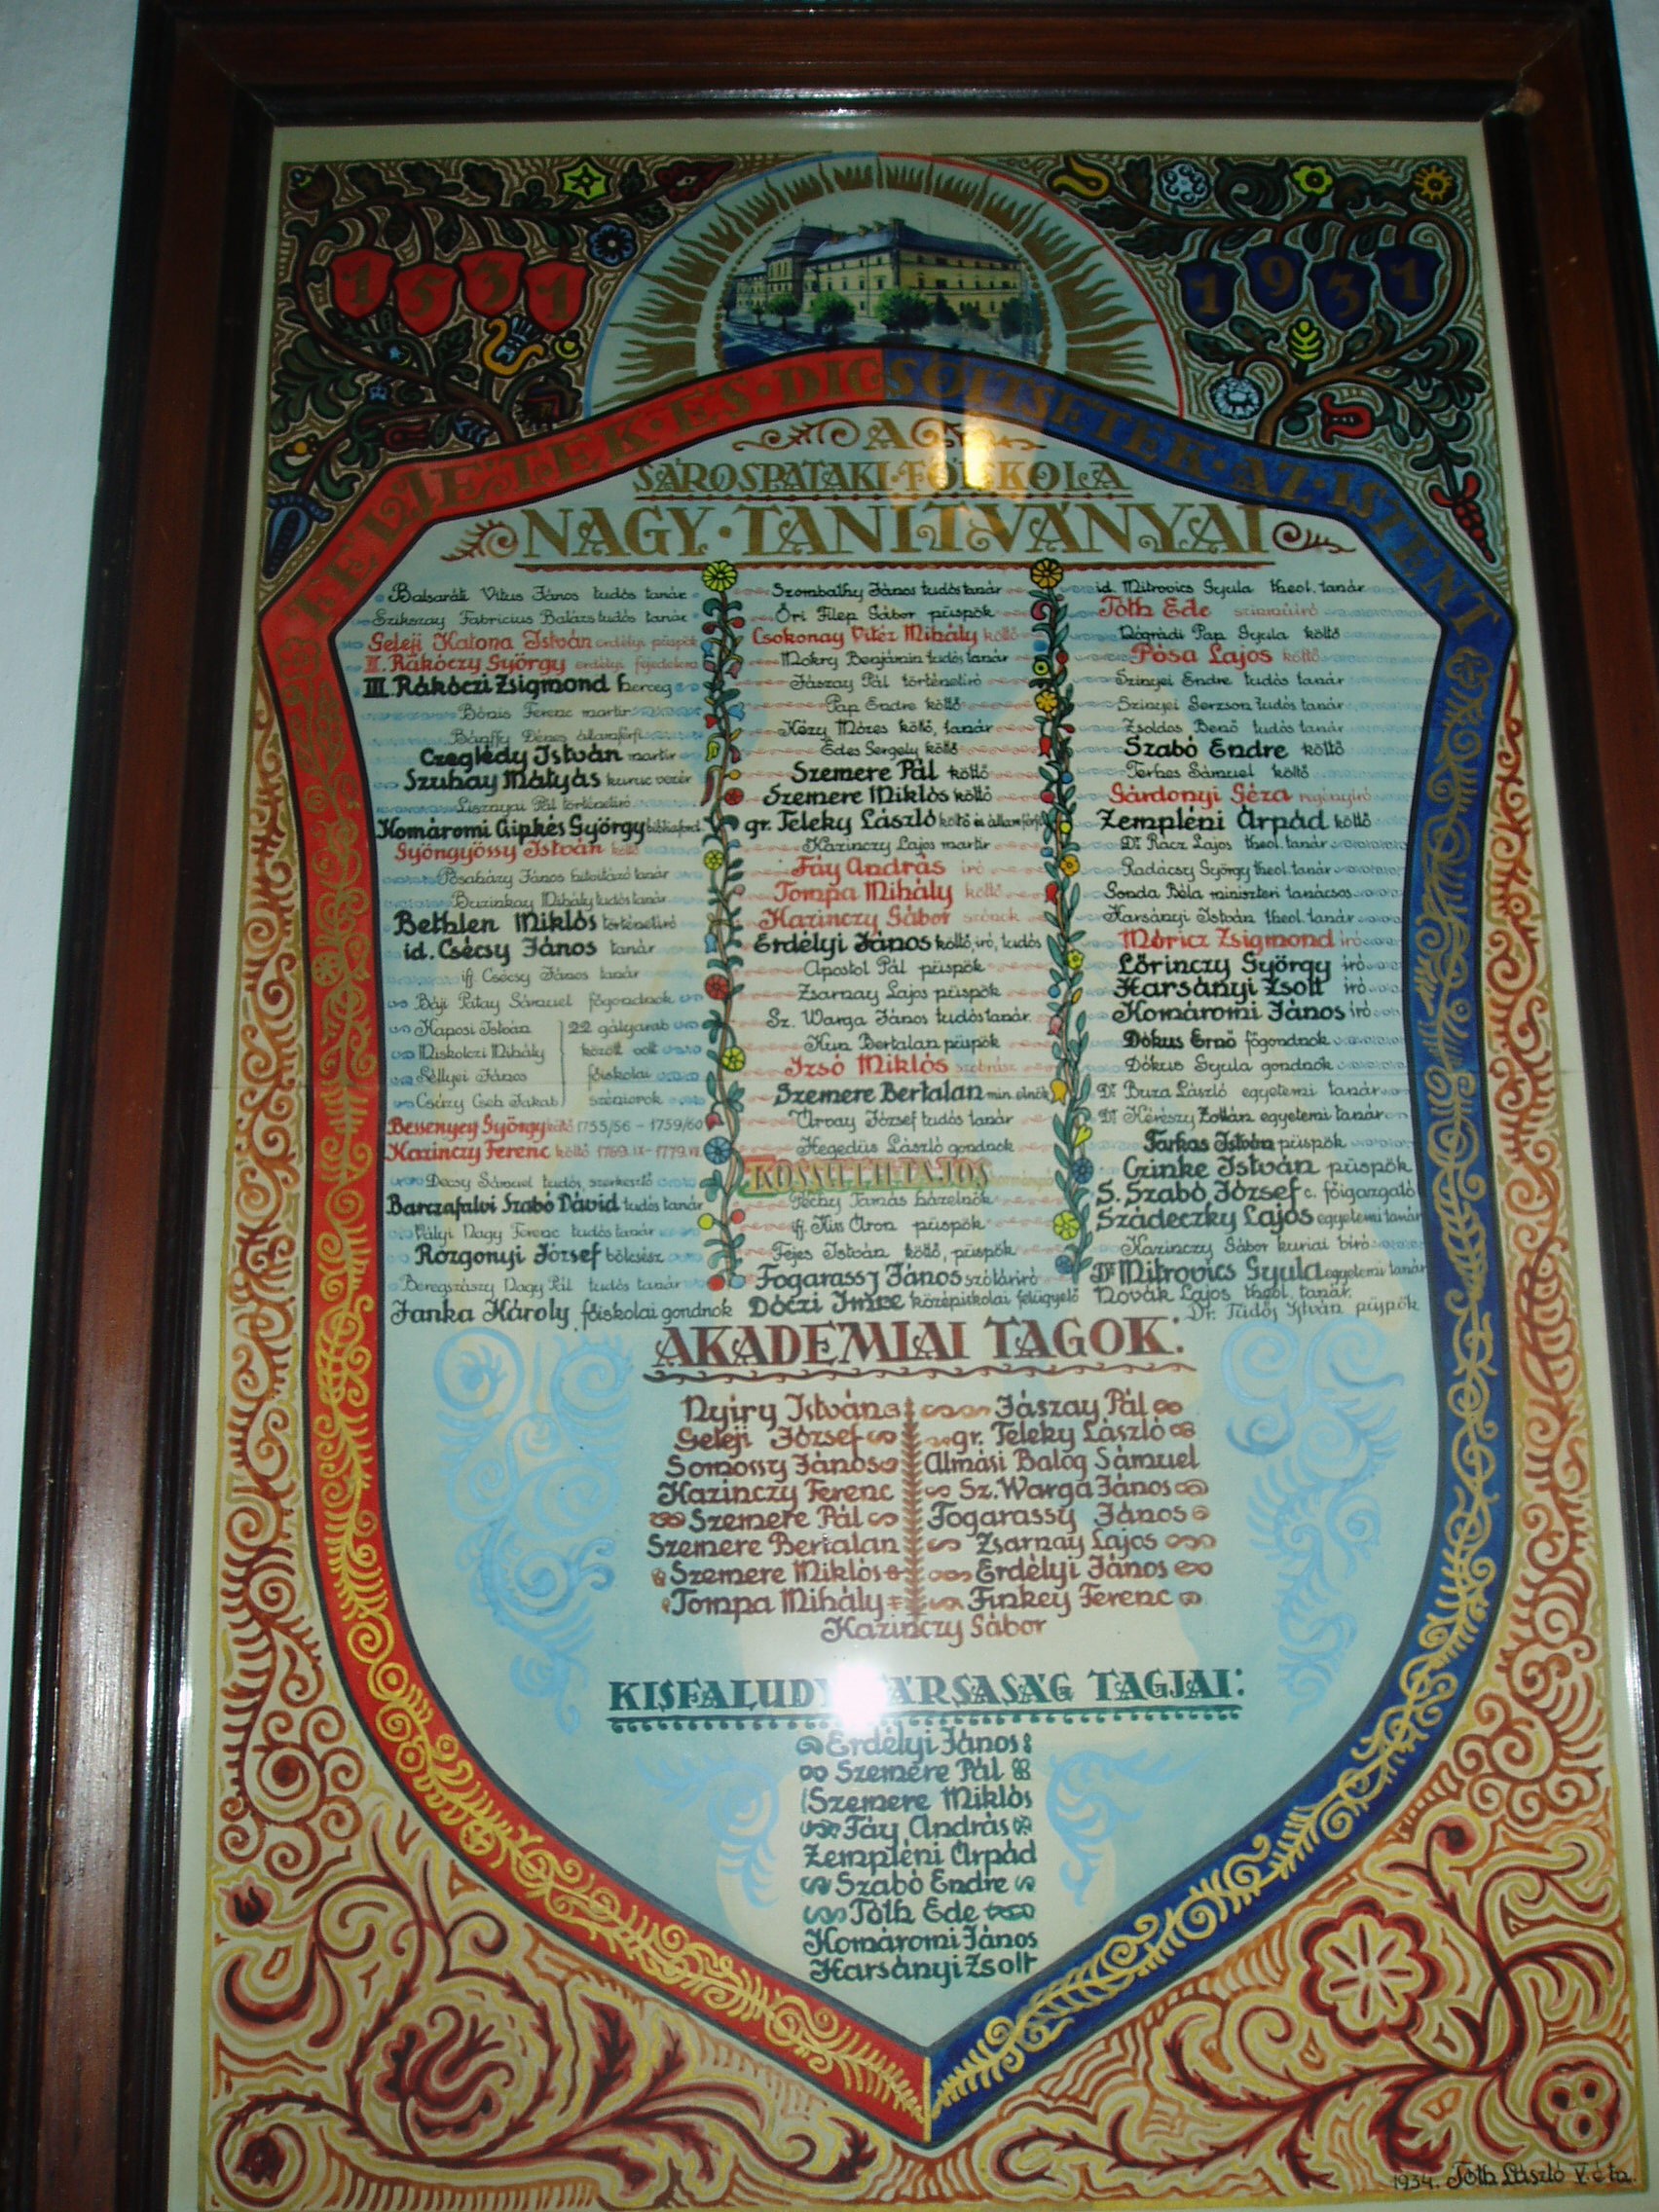 1531
1931
KELJETEK·ÉS·DICSŐITSÉTEK·AZ·ISTENT
A
SÁROSPATAKI·FŐISKOLA
NAGY·TANITVÁNYAI
Balsaráti Vitus János tudós tanár
Szikszay Fabricius Balázs tudós tanár
Geleji Katona István erdélyi püspök
II. Rákóczy György erdélyi fejedelem
III. Rákóczi Zsigmond herceg
Bónis Ferenc martir
Bánffy Dénes államférfi
Czeglédy István martir
Szuhay Mátyás kuruc vezér
Lisznyai Pál történetiró
Komáromi Csipkés György bibliaford.
Gyöngyössy István költő
Pósaházy János hitvitázó tanár
Buzinkay Mihály tudós tanár
Bethlen Miklós történetiró
id. Csécsy János tanár
ifj. Csécsy János tanár
Báji Patay Sámuel főgondnok
Kaposi István 22 gályarab
Miskolczi Mihály között volt
Séllyei János főiskolai
Csúzy Cseh Jakab széniorok
Bessenyey György költő 1755/56 - 1759/60
Kazinczy Ferenc költő 1769. IX - 1779. VI.
Decsy Sámuel tudós, szerkesztő
Barczafalvi Szabó Dávid tudós tanár
Vályi Nagy Ferenc tudós tanár
Rozgonyi József bölcsész
Beregszászy Nagy Pál tudós tanár
Janka Károly főiskolai gondnok
Szombathy János tudós tanár
Őri Filep Gábor püspök
Csokonay Vitéz Mihály költő
Mokry Benjámin tudós tanár
Jászay Pál történetiró
Pap Endre költő
Kézy Mózes költő, tanár
Édes Gergely költő
Szemere Pál költő
Szemere Miklós költő
gr. Teleky László költő és államférfi
Kazinczy Lajos martir
Fáy András iró
Tompa Mihály költő
Kazinczy Gábor szónok
Erdélyi János költő, iró, tudós
Apostol Pál püspök
Zsarnay Lajos püspök
Sz. Warga János tudós tanár.
Kun Bertalan püspök
Izsó Miklós szobrász
Szemere Bertalan min. elnök
Árvay József tudós tanár
Hegedüs László gondnok
KOSSUTH LAJOS
Péchy Tamás házelnök
ifj. Kiss Áron püspök
Fejes István költő, püspök
Fogarassy János szótáriró
Dóczi Imre középiskolai felügyelő
id. Mitrovics Gyula theol. tanár
Tóth Ede szinműiró
Nógrádi Pap Gyula költő
Pósa Lajos költő
Szinyei Endre tudós tanár
Szinyei Gerzson tudós tanár
Zsoldos Benő tudós tanár
Szabó Endre költő
Terhes Sámuel költő
Gárdonyi Géza regényiró
Zempléni Árpád költő
Dr. Rácz Lajos theol. tanár
Radácsy György theol. tanár
Gonda Béla miniszteri tanácsos
Harsányi István theol. tanár
Móricz Zsigmond iró
Lőrinczy György iró
Harsányi Zsolt iró
Komáromi János iró
Dókus Ernő főgondnok
Dókus Gyula gondnok
Dr. Buza László egyetemi tanár
Dr. Kérészy Zoltán egyetemi tanár
Farkas István püspök
Czinke István püspök
S. Szabó József c. főigazgató
Szádeczky Lajos egyetemi tanár
Kazinczy Gábor kuriai biró
Dr. Mitrovics Gyula egyetemi tanár
Novák Lajos theol. tanár.
Dr. Tüdős István püspök
AKADÉMIAI TAGOK:
Nyiry István Jászay Pál
Geleji József gr. Teleky László
Somossy János Almási Balóg Sámuel
Kazinczy Ferenc Sz. Warga János
Szemere Pál Fogarassy János
Szemere Bertalan Zsarnay Lajos
Szemere Miklós Erdélyi János
Tompa Mihály Finkey Ferenc
Kazinczy Gábor
KISFALUDY TÁRSASÁG TAGJAI:
Erdélyi János
Szemere Pál
Szemere Miklós
Fáy András
Zempléni Árpád
Szabó Endre
Tóth Ede
Komáromi János
Harsányi Zsolt
1934. Tóth László V. é. tn.